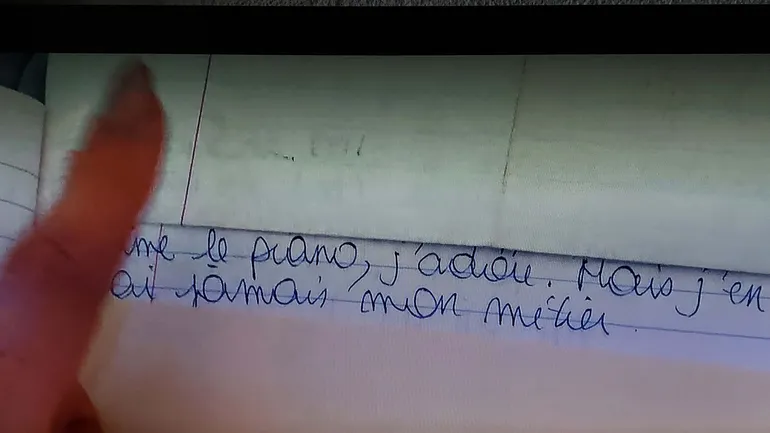 ime le piano, j'adore. Mais j'en
ai jamais mon métier.